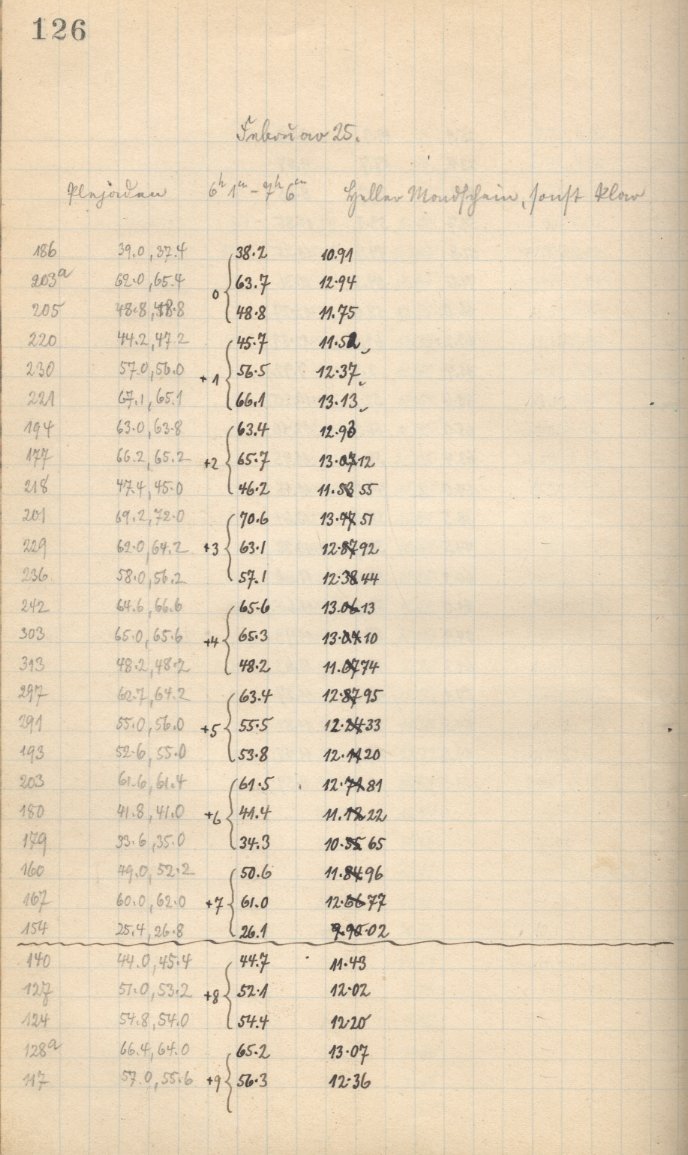 126
Februar 25.
Plejaden 6h 1m - 7h 6m Heller Mondschein, sonst klar
186 39.0, 37.4 38.2 10.91
203a 62.0, 65.4 0 { 63.7 12.94
205 48.8, 48.8 48.8 11.75
220 44.2, 47.2 45.7 11.52
230 57.0, 56.0 +1 { 56.5 12.37
221 67.1, 65.1 66.1 13.13
194 63.0, 63.8 63.4 12.93
177 66.2, 65.2 +2 { 65.7 13.12
218 47.4, 45.0 46.2 11.55
201 69.2, 72.0 70.6 13.51
229 62.0, 64.2 +3 { 63.1 12.92
236 58.0, 56.2 57.1 12.44
242 64.6, 66.6 65.6 13.13
303 65.0, 65.6 +4 { 65.3 13.10
313 48.2, 48.2 48.2 11.74
297 62.7, 64.2 63.4 12.95
291 55.0, 56.0 +5 { 55.5 12.33
193 52.6, 55.0 53.8 12.20
203 61.6, 61.4 61.5 12.81
180 41.8, 41.0 +6 { 41.4 11.22
179 33.6, 35.0 34.3 10.65
160 49.0, 52.2 50.6 11.96
167 60.0, 62.0 +7 { 61.0 12.77
154 25.4, 26.8 26.1 02
140 44.0, 45.4 44.7 11.43
127 51.0, 53.2 +8 { 52.1 12.02
124 54.8, 54.0 54.4 12.20
128a 66.4, 64.0 65.2 13.07
117 57.0, 55.6 +9 { 56.3 12.36